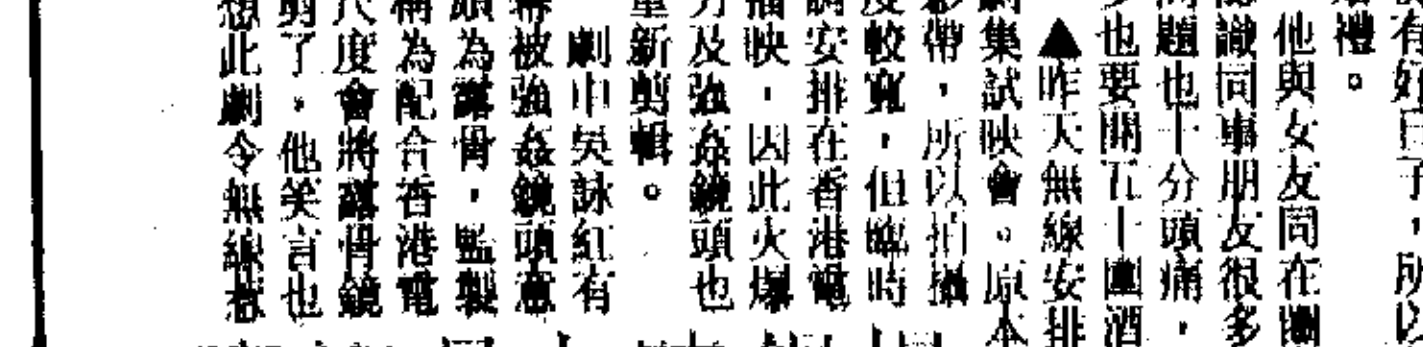 有好日子，所以
禮。
他與女友同在
識同事朋友很多
問題也十分頭痛，
也要開五十圍酒
▲昨天無線安排
集試映會。原本
帶，所以拍攝
度較寬，但臨時
安排在香港電
播映，因此火爆
及強姦鏡頭也
重新剪輯。
劇中吳詠紅有
被強姦鏡頭
頗為露骨，監製
稱為配合香港電
尺度會將露骨鏡
剪了，他笑言也
想此劇令無線惹